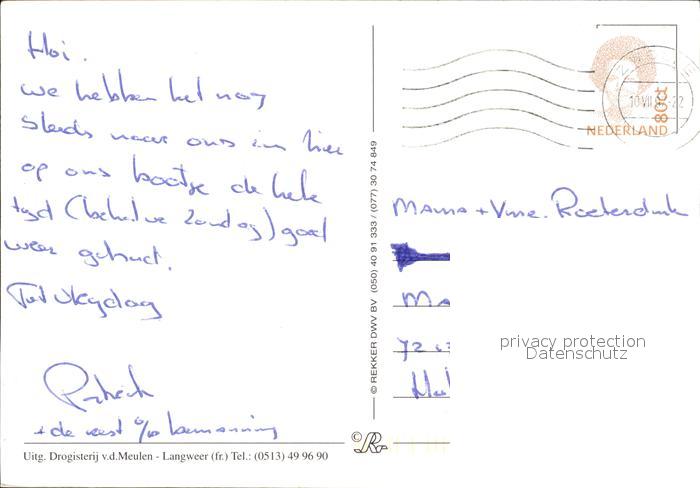 Hoi.
we hebben het nog
Steeds naar ons zin hier
op ons bootje de hele
tijd (behalve Zondag) goed
weer gehad.
Tot Vrijdag
Patrick
+ de rest v/d bemanning
Uitg. Drogisterij v.d.Meulen - Langweer (fr.) Tel.: (0513) 49 96 90
© REKKER DWV BV (050) 40 91 333 / (077) 30 74 849
NEDERLAND
80ct
10 VII
Mama + Vme. Roeterdink
Ma
72
privacy protection
Datenschutz
©R